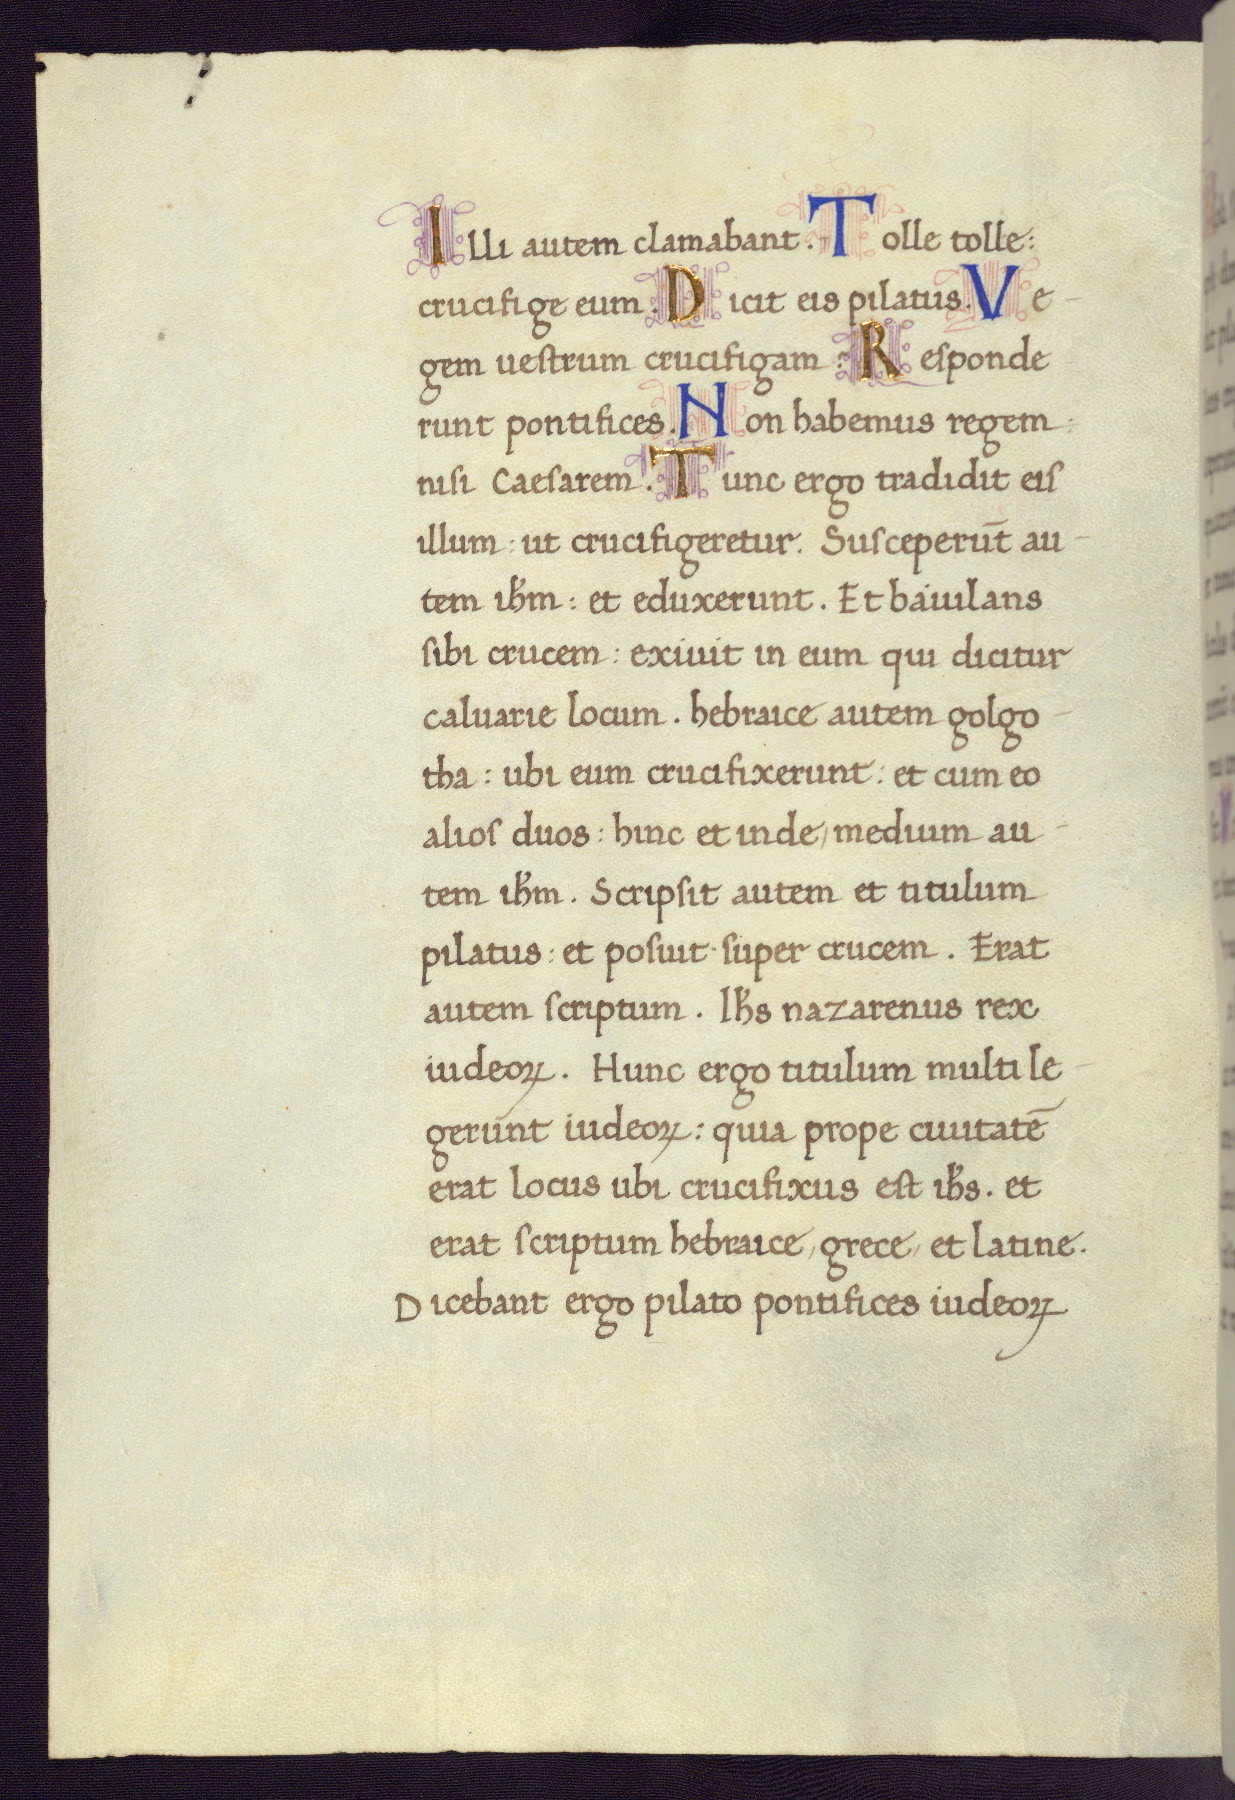 Illi autem clamabant. Tolle tolle:
crucifige eum. Dicit eis pilatus. Ve-
gem uestrum crucifigam: Responde
runt pontifices. Non habemus regem:
nisi Caesarem. Tunc ergo tradidit eis
illum: ut crucifigeretur. Susceperūt au-
tem ihm̄: et eduxerunt. Et baiulans
sibi crucem: exiuit in eum qui dicitur
caluarie locum. hebraice autem golgo-
tha: ubi eum crucifixerunt: et cum eo
alios duos: hinc et inde, medium au-
tem ihm̄. Scripsit autem et titulum
pilatus: et posuit super crucem. Erat
autem scriptum. Ihs̄ nazarenus rex
iudeoꝝ. Hunc ergo titulum multi le-
gerunt iudeoꝝ: quia prope ciuitatē
erat locus ubi crucifixus est ihs̄. et
erat scriptum hebraice, grece, et latine.
Dicebant ergo pilato pontifices iudeoꝝ